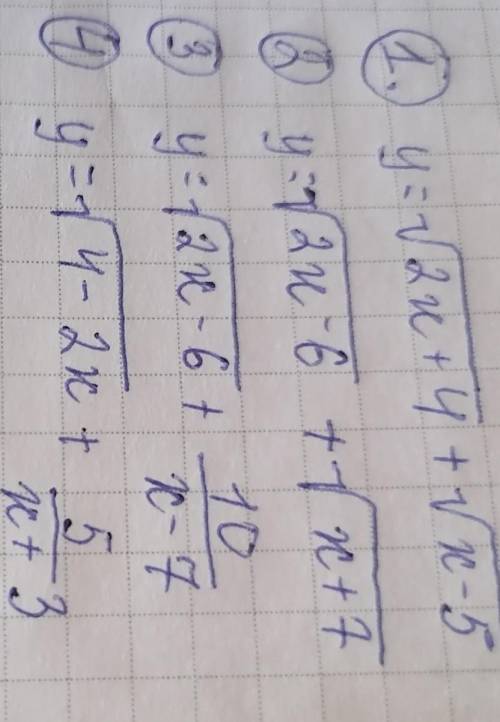 1. y = √(2x + 4) + √(x - 5)
2. y = √(2x - 6) + √(x + 7)
3. y = √(2x - 6) + 10/(x - 7)
4. y = √(4 - 2x) + 5/(x + 3)